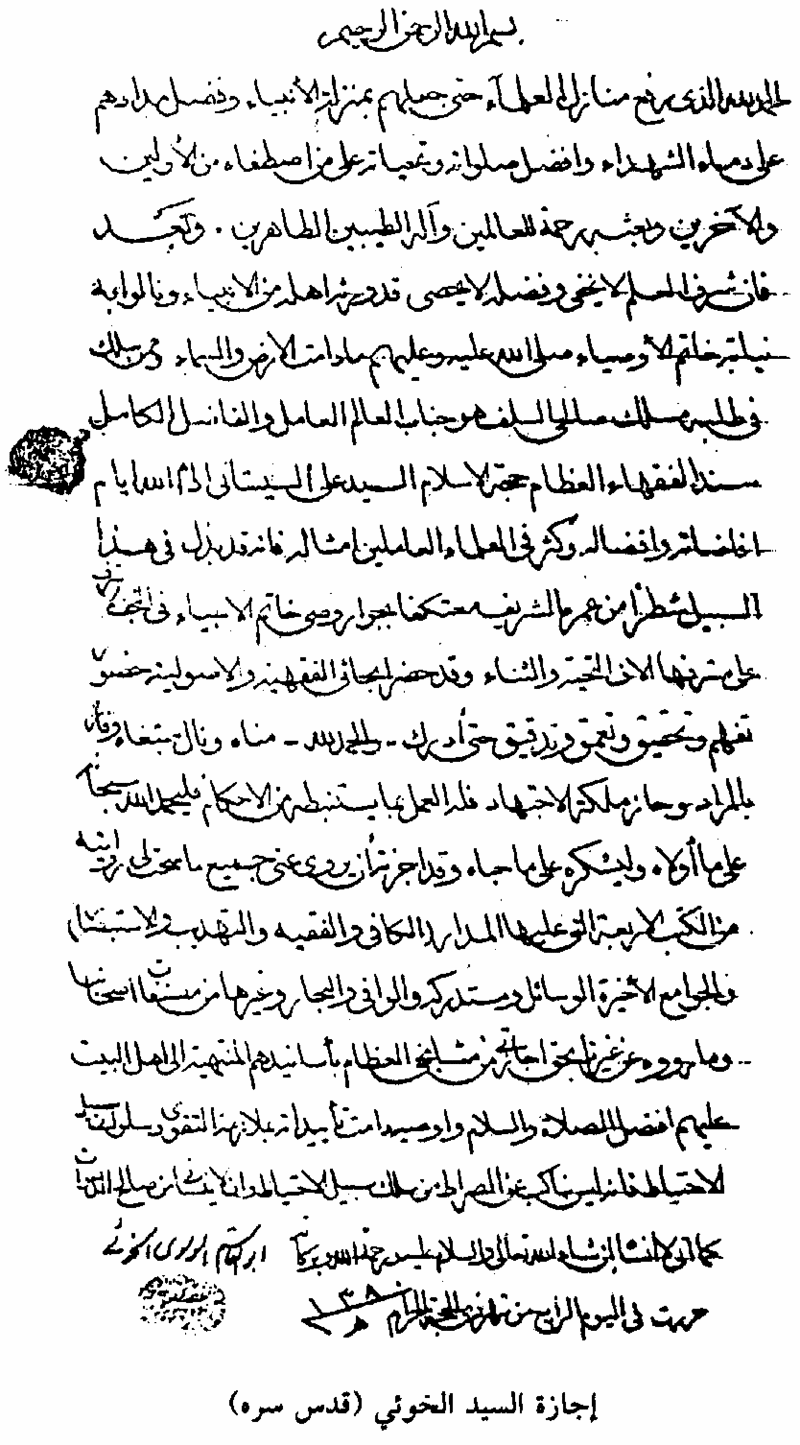 بسم الله الرحمن الرحيم
الحمد لله الذي رفع منازل العلماء حتى جعلهم بمنزلة الأنبياء وفضل مدادهم
على دماء الشهداء وافضل صلواته وتحياته على من اصطفاه من الأولين
والآخرين وبعثه رحمة للعالمين وآله الطيبين الطاهرين . وبعد
فان شرف العلم لا يخفى وفضله لا يحصى قد ورثه اهله من الانبياء ونالوا به
نيابة خاتم الأوصياء صلى الله عليه وعليهم ما دامت الأرض والسماء وممن سلك
في طلبه مسلك صالحي السلف هو جناب العالم العامل والفاضل الكامل
سند الفقهاء العظام حجة الاسلام السيد علي السيستاني ادام الله ايام
افاضاته وافضاله وكثر في العلماء العاملين امثاله فانه قد بذل في هذا
السبيل شطراً من عمره الشريف معتكفا بجوار وصي خاتم الانبياء في النجف الاشرف
على مشرفها آلاف التحية والثناء وقد حضر ابحاثي الفقهية والاصولية حضور
تفهم وتحقيق وتعمق وتدقيق حتى أدرك - والحمد لله - مناه ونال مبتغاه وفاز
بالمراد وحاز ملكة الاجتهاد فله العمل بما يستنبطه من الاحكام فليحمد الله سبحانه
على ما أولاه وليشكره على ما حباه وقد اجزته أن يروي عني جميع ما صحت لي روايته
من الكتب الاربعة التي عليها المدار الكافي والفقيه والتهذيب والاستبصار
والجوامع الأخيرة الوسائل ومستدركه والوافي والبحار وغيرها من مصنفات اصحابنا
وما رووه عن غيرنا بحق اجازتي من مشايخي العظام بأسانيدهم المنتهية الى اهل البيت
عليهم افضل الصلاة والسلام واوصيه دامت تأييداته بملازمة التقوى وسلوك سبيل
الاحتياط فانه ليس بناكب عن الصراط من سلك سبيل الاحتياط وان لا ينساني من صالح الدعوات
كما اني لا انساه ان شاء الله تعالى والسلام عليه ورحمة الله وبركاته ابو القاسم الموسوي الخوئي
حررت في اليوم الرابع من شهر ذي الحجة الحرام ١٣٨٠ هـ
إجازة السيد الخوئي (قدس سره)